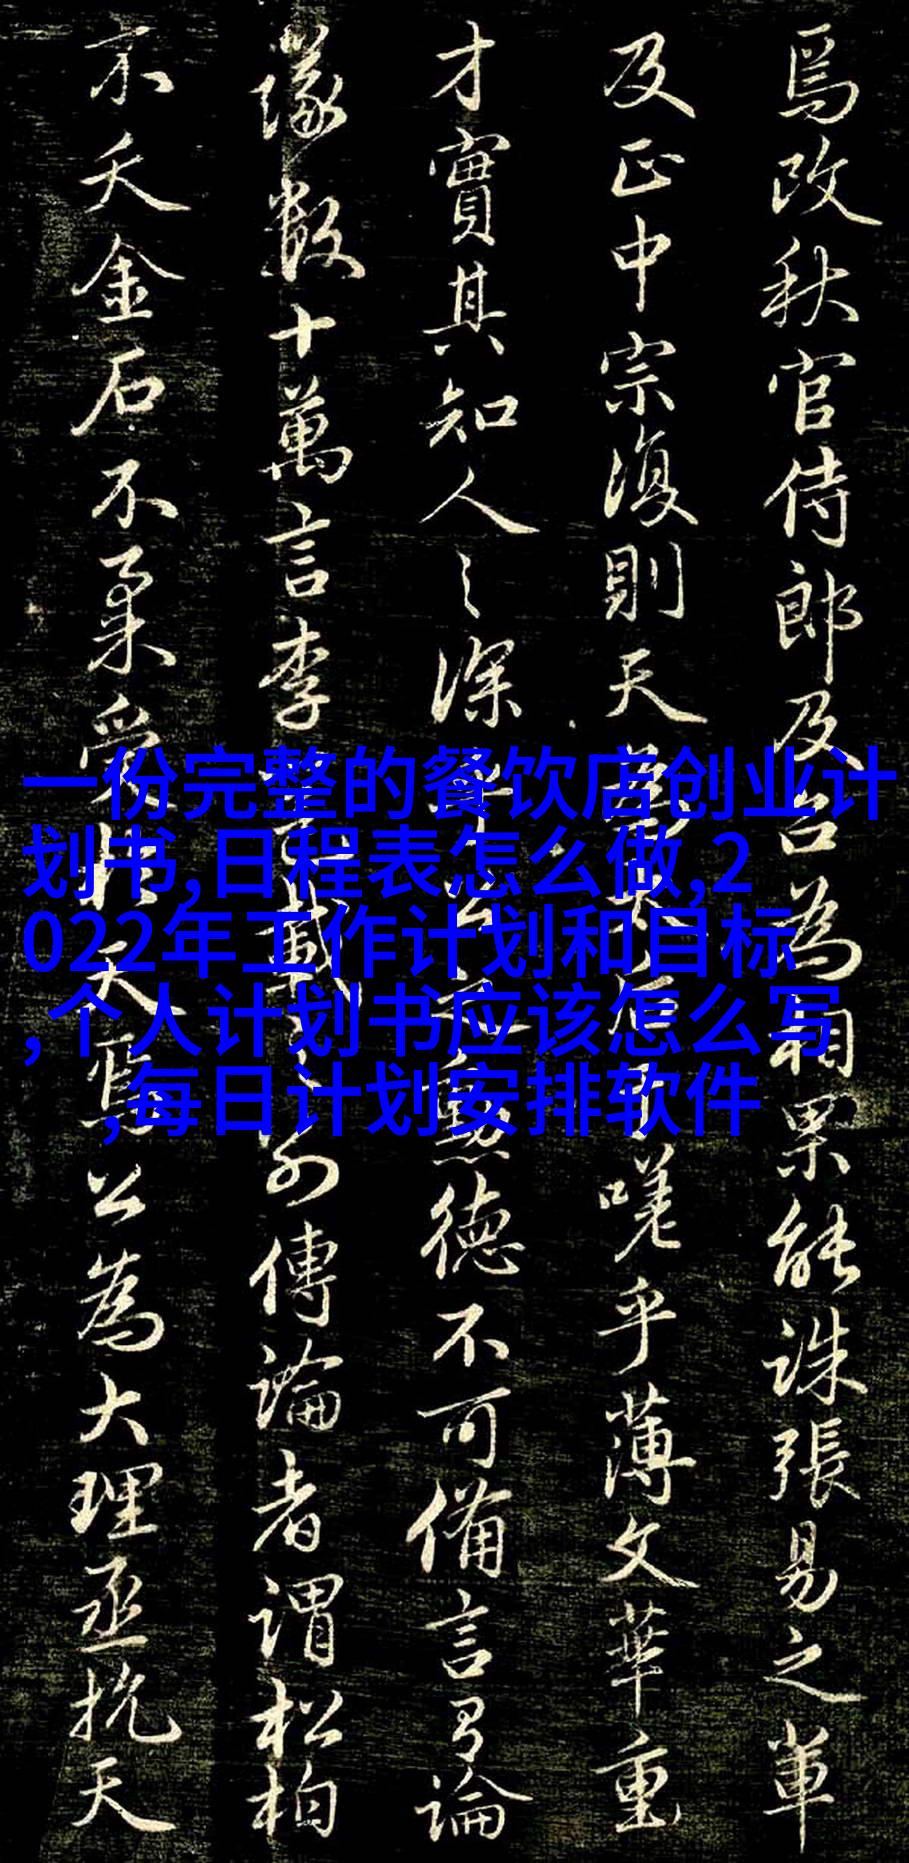 焉改秋官侍郎及召為相果能誅張易之輩
反正中宗復則天后嗟乎薄文華重
才實其知人之深乎公之勳德不可備言有論
議數十萬言李邕載之別傳論者謂松柏
不夭金石不柔受於天焉公為大理丞抗天
一份完整的餐饮店创业计
划书,日程表怎么做,2
022年工作计划和目标
,个人计划书应该怎么写
,每日计划安排软件